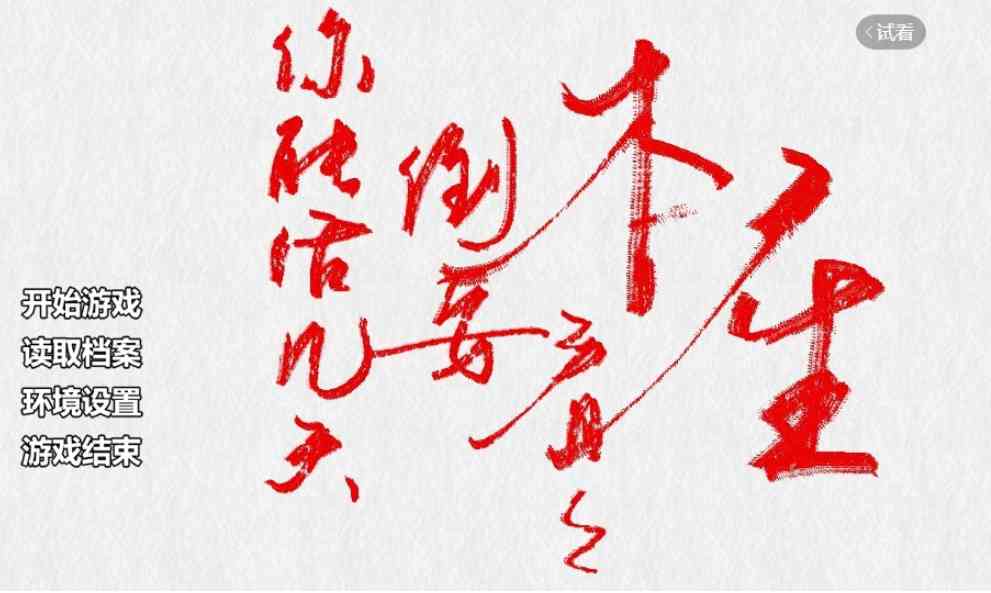 本座
倒要
看々
你能活几天
试看
开始游戏
读取档案
环境设置
游戏结束